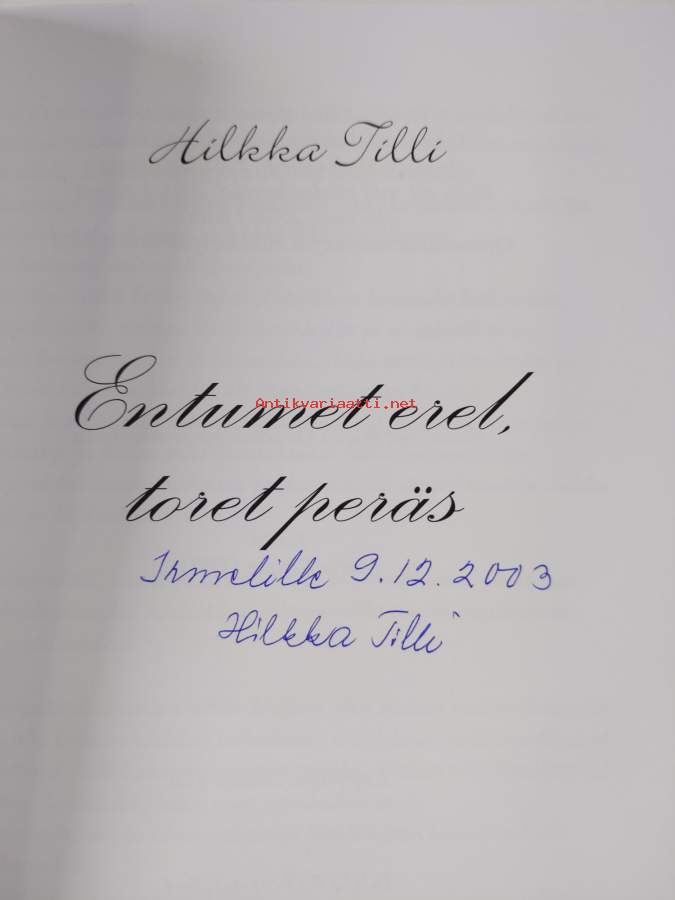 Hilkka Tilli
Entumet erel,
Antikvariaatti.net
toret peräs
Irmelille 9.12.2003
Hilkka Tilli